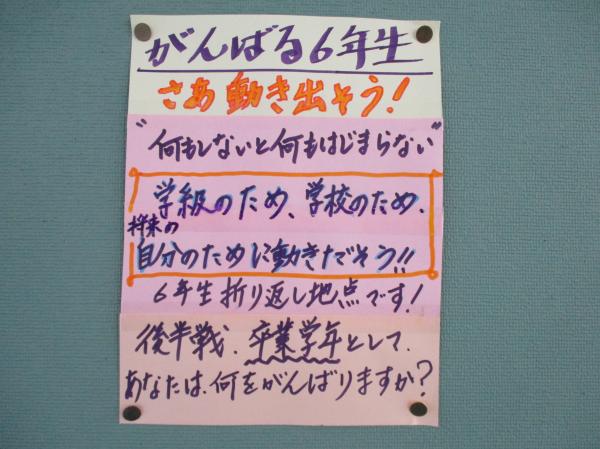 がんばる6年生
さあ動き出そう!
"何もしないと何もはじまらない"
学級のため、学校のため、
将来の
自分のために動きだそう!!
6年生折り返し地点です!
後半戦、卒業学年として、
あなたは、何をがんばりますか?